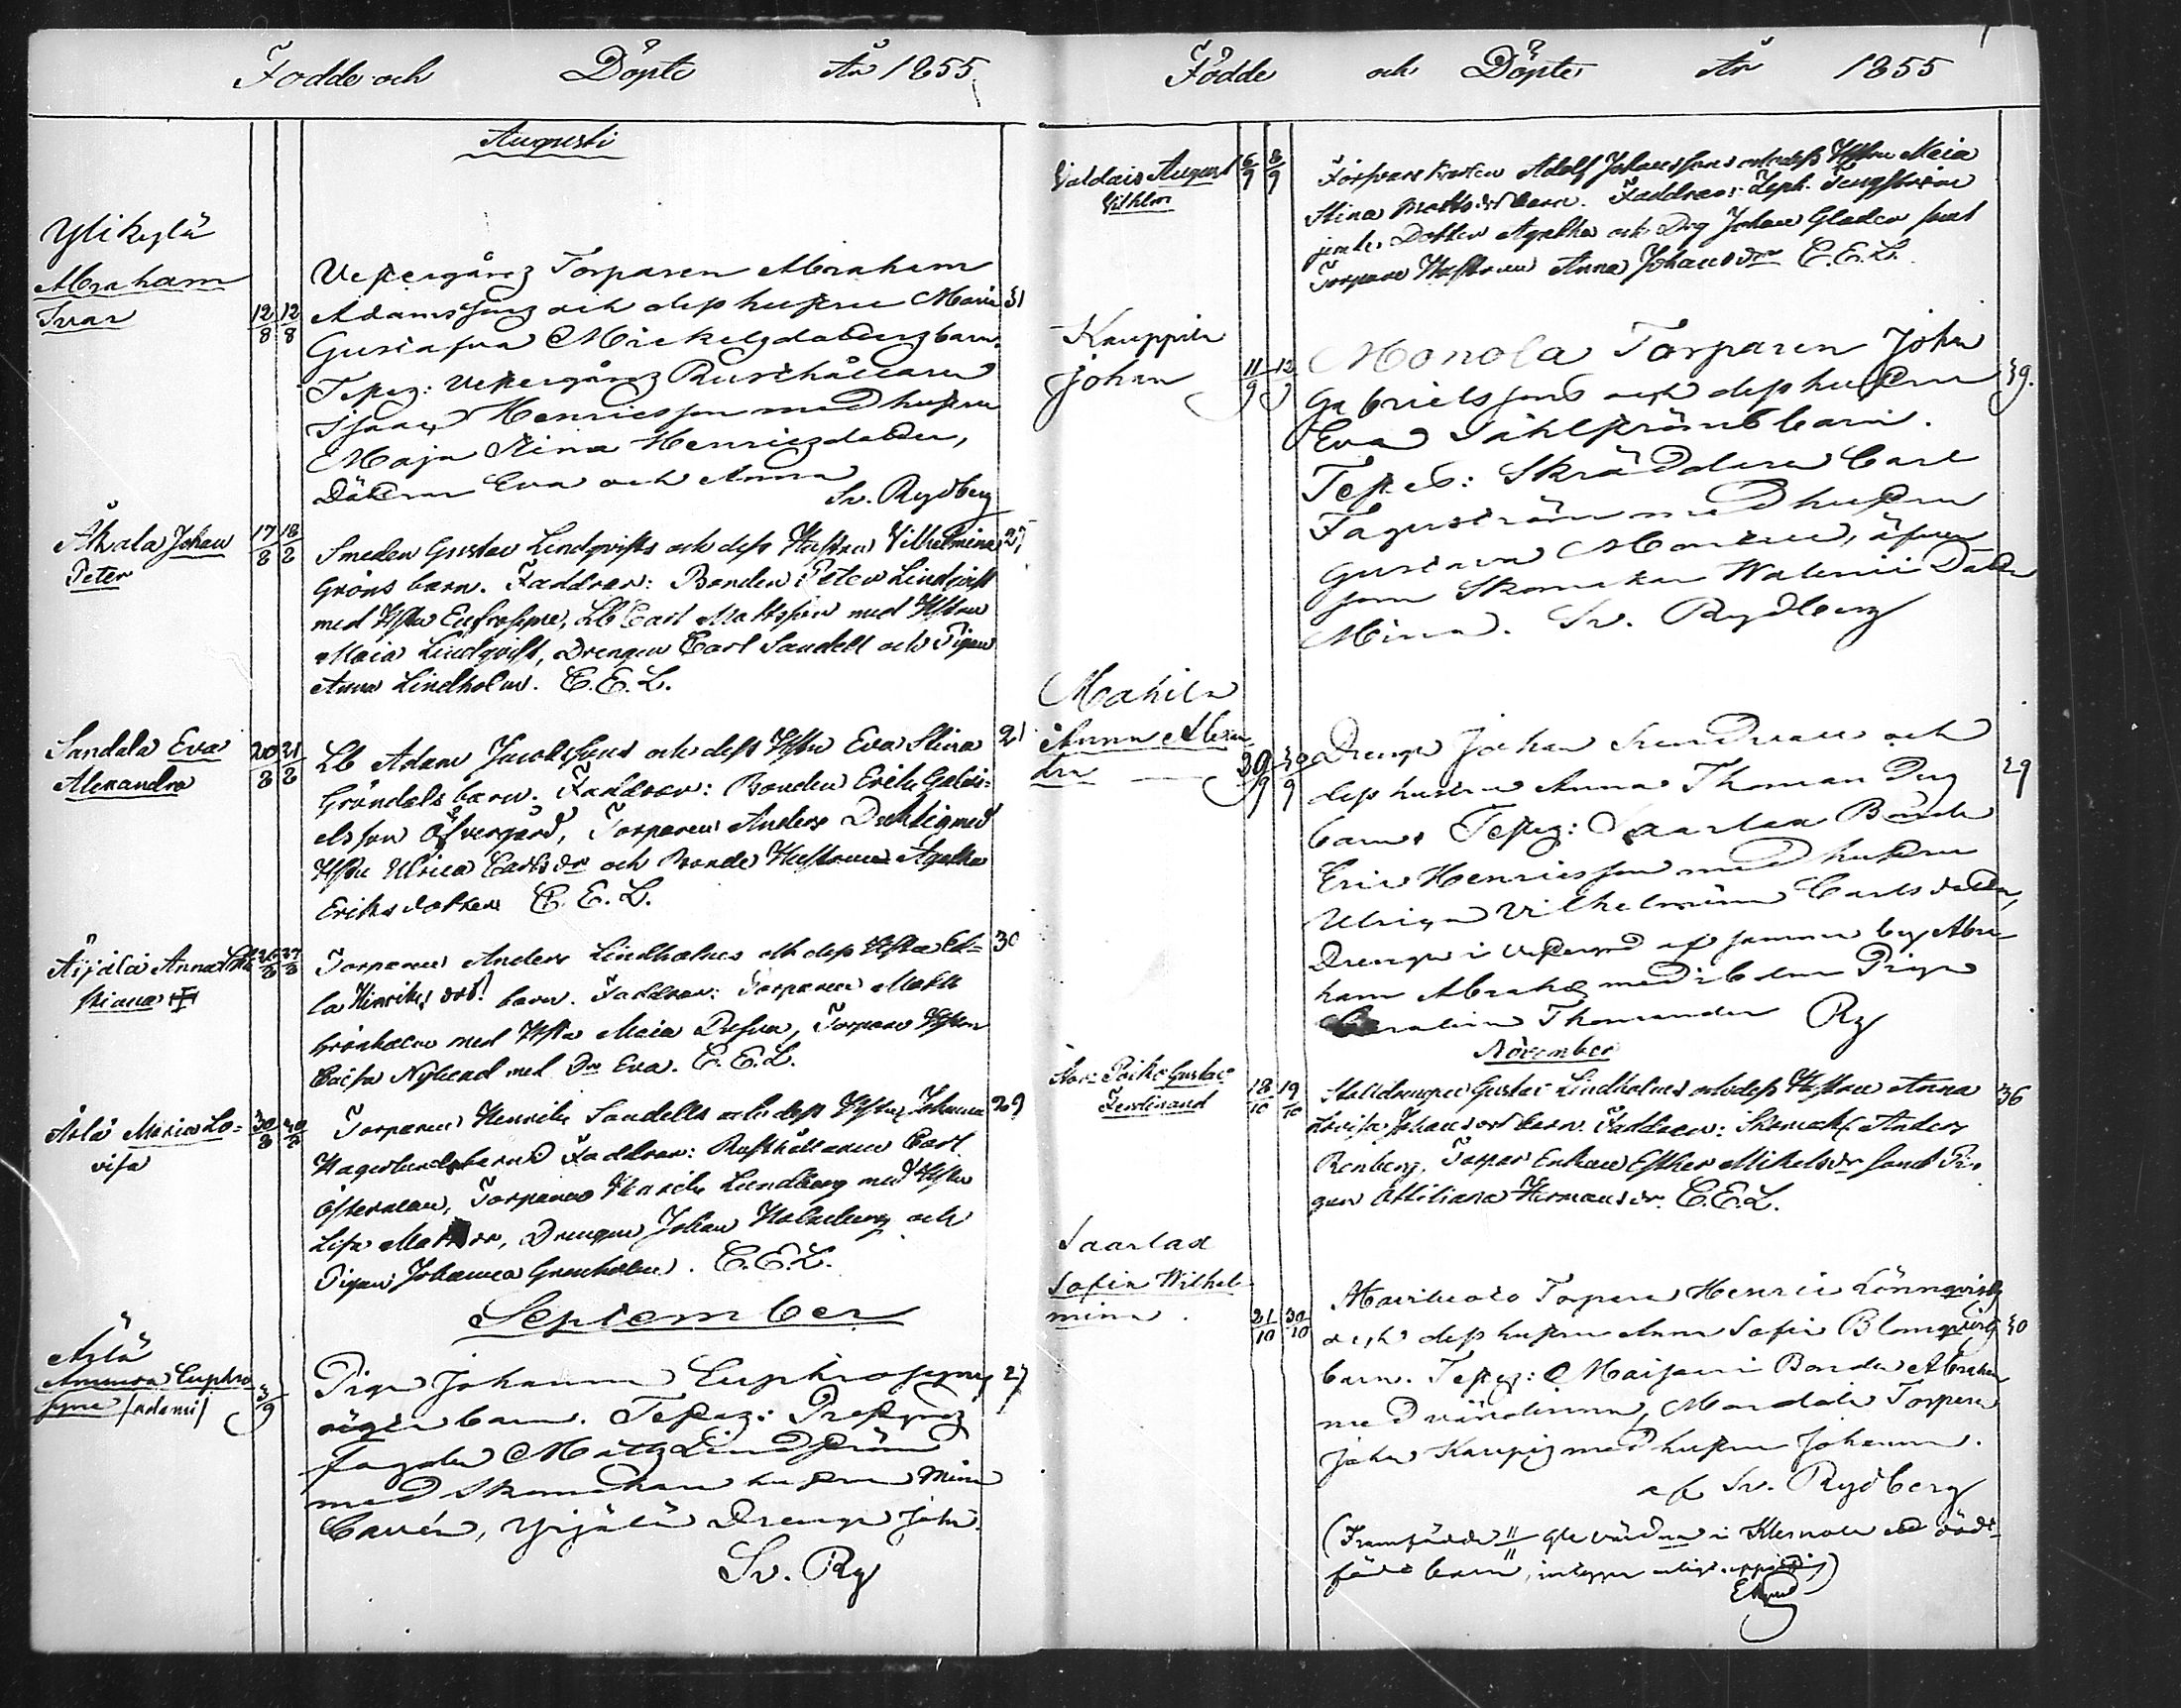 Födde och Döpte År 1855
Augusti
Ylikylä
Abraham
Ivar
12/8 12/8
Vestergårz Torparen Abraham
Adamssonz och dess hustru Maria 31
Gustafva Mickelzdotterz barn.
Testez: Vestergårz Rusthållaren
Isaac Henricsson med hustru
Maja Stina Henriczdotter,
Döttrar Eva och Anna
Sv. Rydberg
Åkala Johan
Peter
17/8 18/8
Smeden Gustav Lindqvists och dess Hustru Vilhelmina 27
Gröns barn. Faddrar: Bonden Peter Lindqvist
med Hstru Eufrosyne, Lb Carl Mattsson med Hstru
Maia Lindqvist, Drengen Carl Sandell och Pigan
Anna Lindholm. C.E.L.
Sandala Eva
Alexandra
20/8 21/8
Lb Adam Jacobssons och dess Hstru Eva Stina 21
Gröndals barn. Faddrar: Bonden Erik Gabri-
elsson Öfvergård, Torparen Anders Duktig med
Hstru Ulrica Carlsdr och Bonde Hustrun Agatha
Eriksdotter C.E.L.
Äijälä Anna
stiana
26/8 27/8
Torparen Anders Lindholms och dess Hstru Ed- 30
la Henriksdrs barn. Faddrar: Torparen Matts
Grönholm med Hstru Maia, Torpare Hstrun
Caisa Nylund med Dr Eva. C.E.L.
Ärlä Maria Lo-
visa
30/8 30/8
Torparen Henrik Sandells och dess Hstru Johanna 29
Hagerlunds barn Faddrar: Rusthållaren Carl
Österman, Torparen Henrik Lundberg med Hstru
Lisa, Drengen Johan Holmberg och
Pigan Johanna Grenholm. C.E.L.
September
Ärlä
Amanda Euphro
syne
3/9
Pigan Johanna Euphrosynes 27
oägta barn. Testez: Prestgårdz
fogden Mattz Lindström
med Skomakare hustrun Mina
Cavén, Yrjälä Drengen Joh.
Sv. Ry
Födde och Döpte År 1855
Valdais August
Vilhlm
6/9 8/9
Försvarskarlen Adolf Johanssons och dess Hstru Maia
Stina Mattsdrs barn. Faddrar: Seph. Tengström
jemte Dottern Agatha och Drg Johan Glader samt
Torpare Hustrun Anna Johansdr C.E.L.
Kauppila
Johan
11/9 12/9
Monola Torparen Johan
Gabrielssons och dess hustru 39.
Eva Såhlströms barn.
Testes: Skräddaren Carl
Fagerström med hustru
Gustava, äfven-
som Skomakar Dotter
Mina. Sv. Rydberg
Makila
Anna Alexan
dra
29/9 30/9
Drengen Johan och
dess hustru Anna Thomas 29
barn. Testez: Saarlax Bonde
Eric Henricsson med hustru
Ulrica Vilhelmina Carlsdotter,
Drengen i Vestergård af samma by Abra-
ham Abrahs med Pigan
Carolina Thomander Ry
November
Gustav
Ferdinand
18/10 19/10
Stalldrengen Gustav Lindholms och dess Hustru Anna 36
Lovisa Johansdrs barn. Faddrar: Skomak. Anders
Renberg, Torpar Enkan Esther Mikelsdr samt Pi-
gan Attiliana Hermansdr. C.E.L.
Saarlax
Sofia Wilhel
mina
21/10 30/10
Torparen Henric Lönnqvistz
och dess hustru Anna Sofia Blomqvistz 30
barn. Testez: Maisaari Bonden Abraham
med värdinna, Mandala Torparen
Johan Kaupig med hustru Johanna.
af Sv. Rydberg